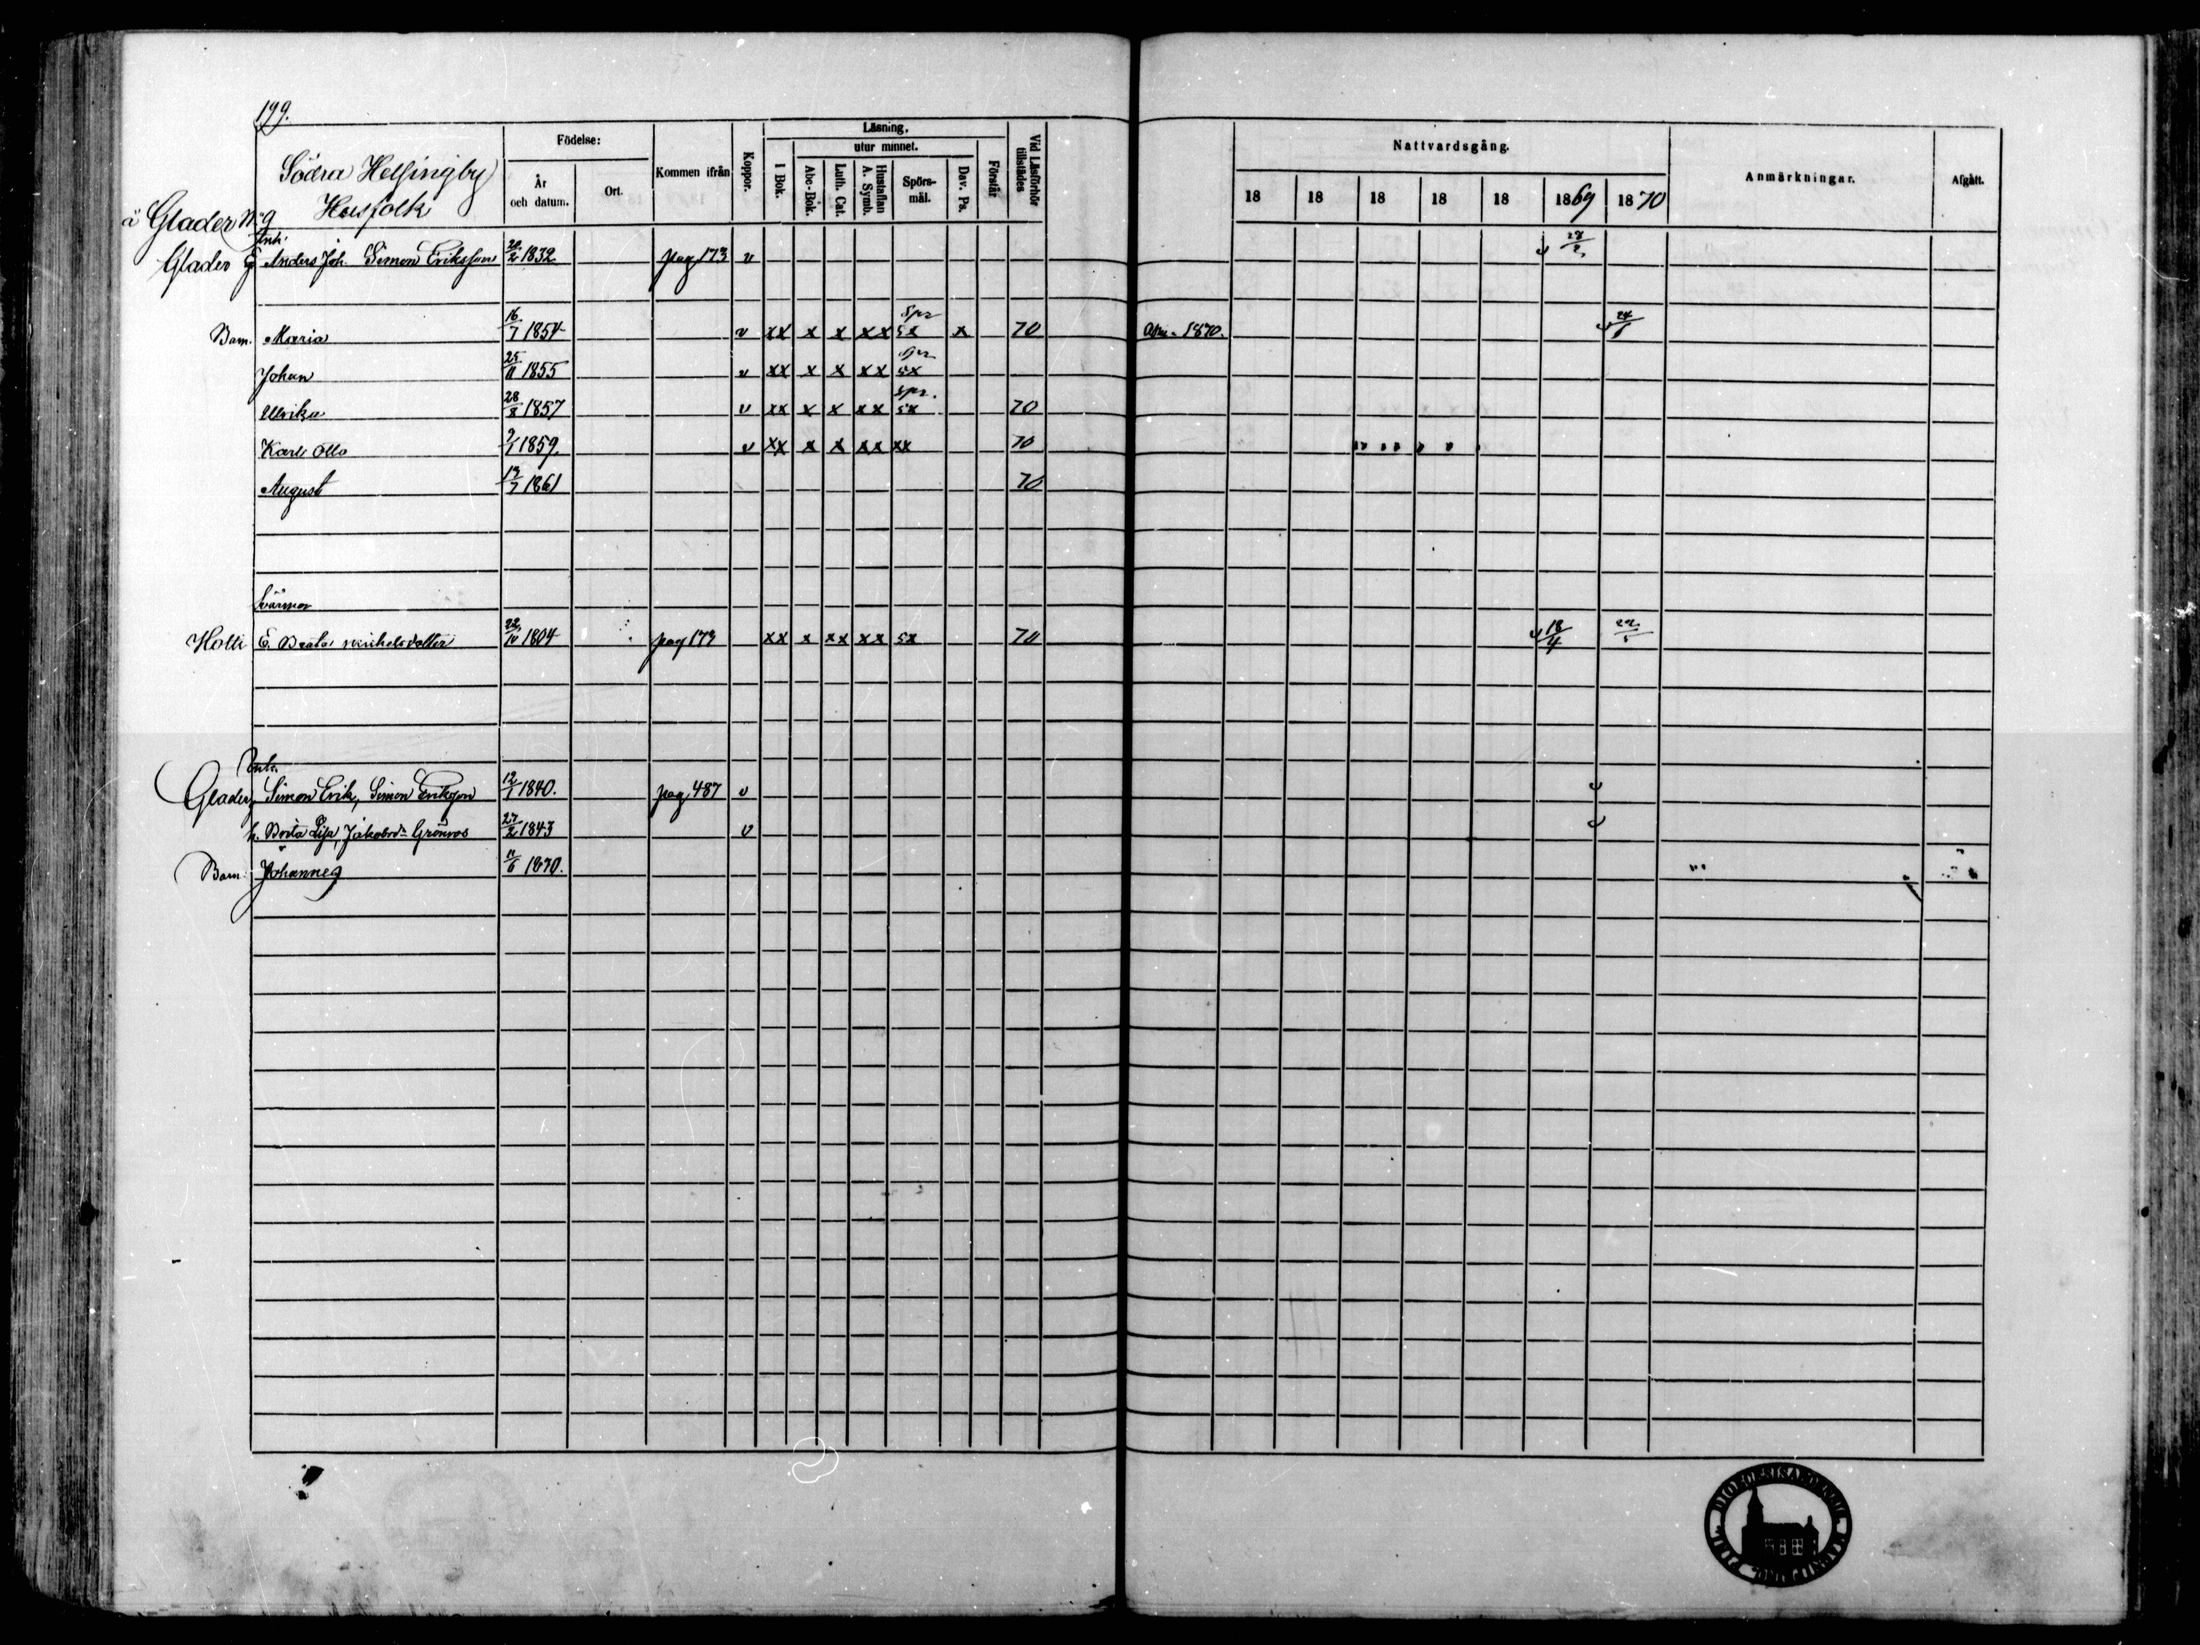 199.
Södra Helsingby
Husfolk
å Glader No 9
Födelse:
År och datum.
Ort.
Kommen ifrån
Koppor.
Läsning,
utur minnet.
I Bok.
Abc-Bok.
Luth. Cat.
Hustaflan A. Symb.
Spörsmål.
Dav. Ps.
Förstår
Vid Läsförhör tillstädes
Nattvardsgång.
18 18 18 18 18 1869 1870
Anmärkningar.
Afgått.
Enk.
Glader Anders Joh. Simon Eriksson 20/2 1832 pag 173 v
Spr
Barn. Maria 16/7 1854 v xx x x xx 5x x 70 1870. 24/
Johan 25/11 1855 v xx x x xx 5x
Spr.
Ulrika 28/8 1857 v xx x x xx 5x 70
Karl Otto 9/1 1859. v xx x x xx xx 70
August 1861 70
Svärmor
Holti E. Beata Mickelsdotter 22/10 1804 pag 173 xx x xx xx 5x 70 v 18/4 22/5
Enk.
Glader Simon Erik, Simon Eriksson 12/1 1840. pag. 487 v v
h. Brita Lisa, Jakobsdr Grönroos 27/2 1843 v v
Barn Johannes 11/6 1870.